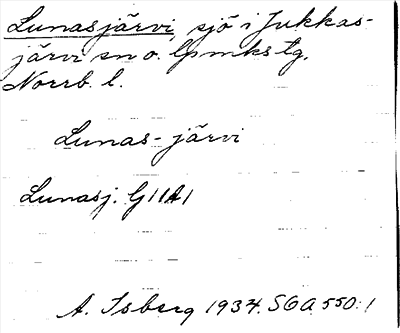 Lunasjärvi, sjö i Jukkas-
järvi sn o. lpmks tg.
Norrb. l.
Lunas-järvi
Lunasj. G11A1
A. Isberg 1934. SOA 550:1